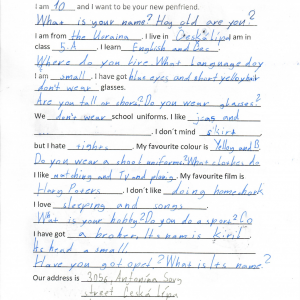 I am 10 and I want to be your new penfriend.
What is your name? Hoy old are you?
I am from the Ucraina. I live in Česká Lípa I am in
class 5.A. I learn English and Čec.
Where do you live What Language do y
I am small. I have got blue eyes and short yellow hair
don't wear glasses.
Are you tall or short? Do you wear glasses?
We don't wear school uniforms. I like and
. I don't mind skirt
but I hate . My favourite colour is Yellow and B
Do you wear a shool uniforms? What clothes do
I like watching and TV and playing. My favourite film is
Harry Poters. I don't like doing homeshork
I love sleeping and songs.
What is your hobby? Do you do a spors? Co
I have got a broker, Its name is kiril.
Its head a small
Have you got a pet? What is Its name?
Our address is 3056, Antonína Sovy
street Česká Lípa